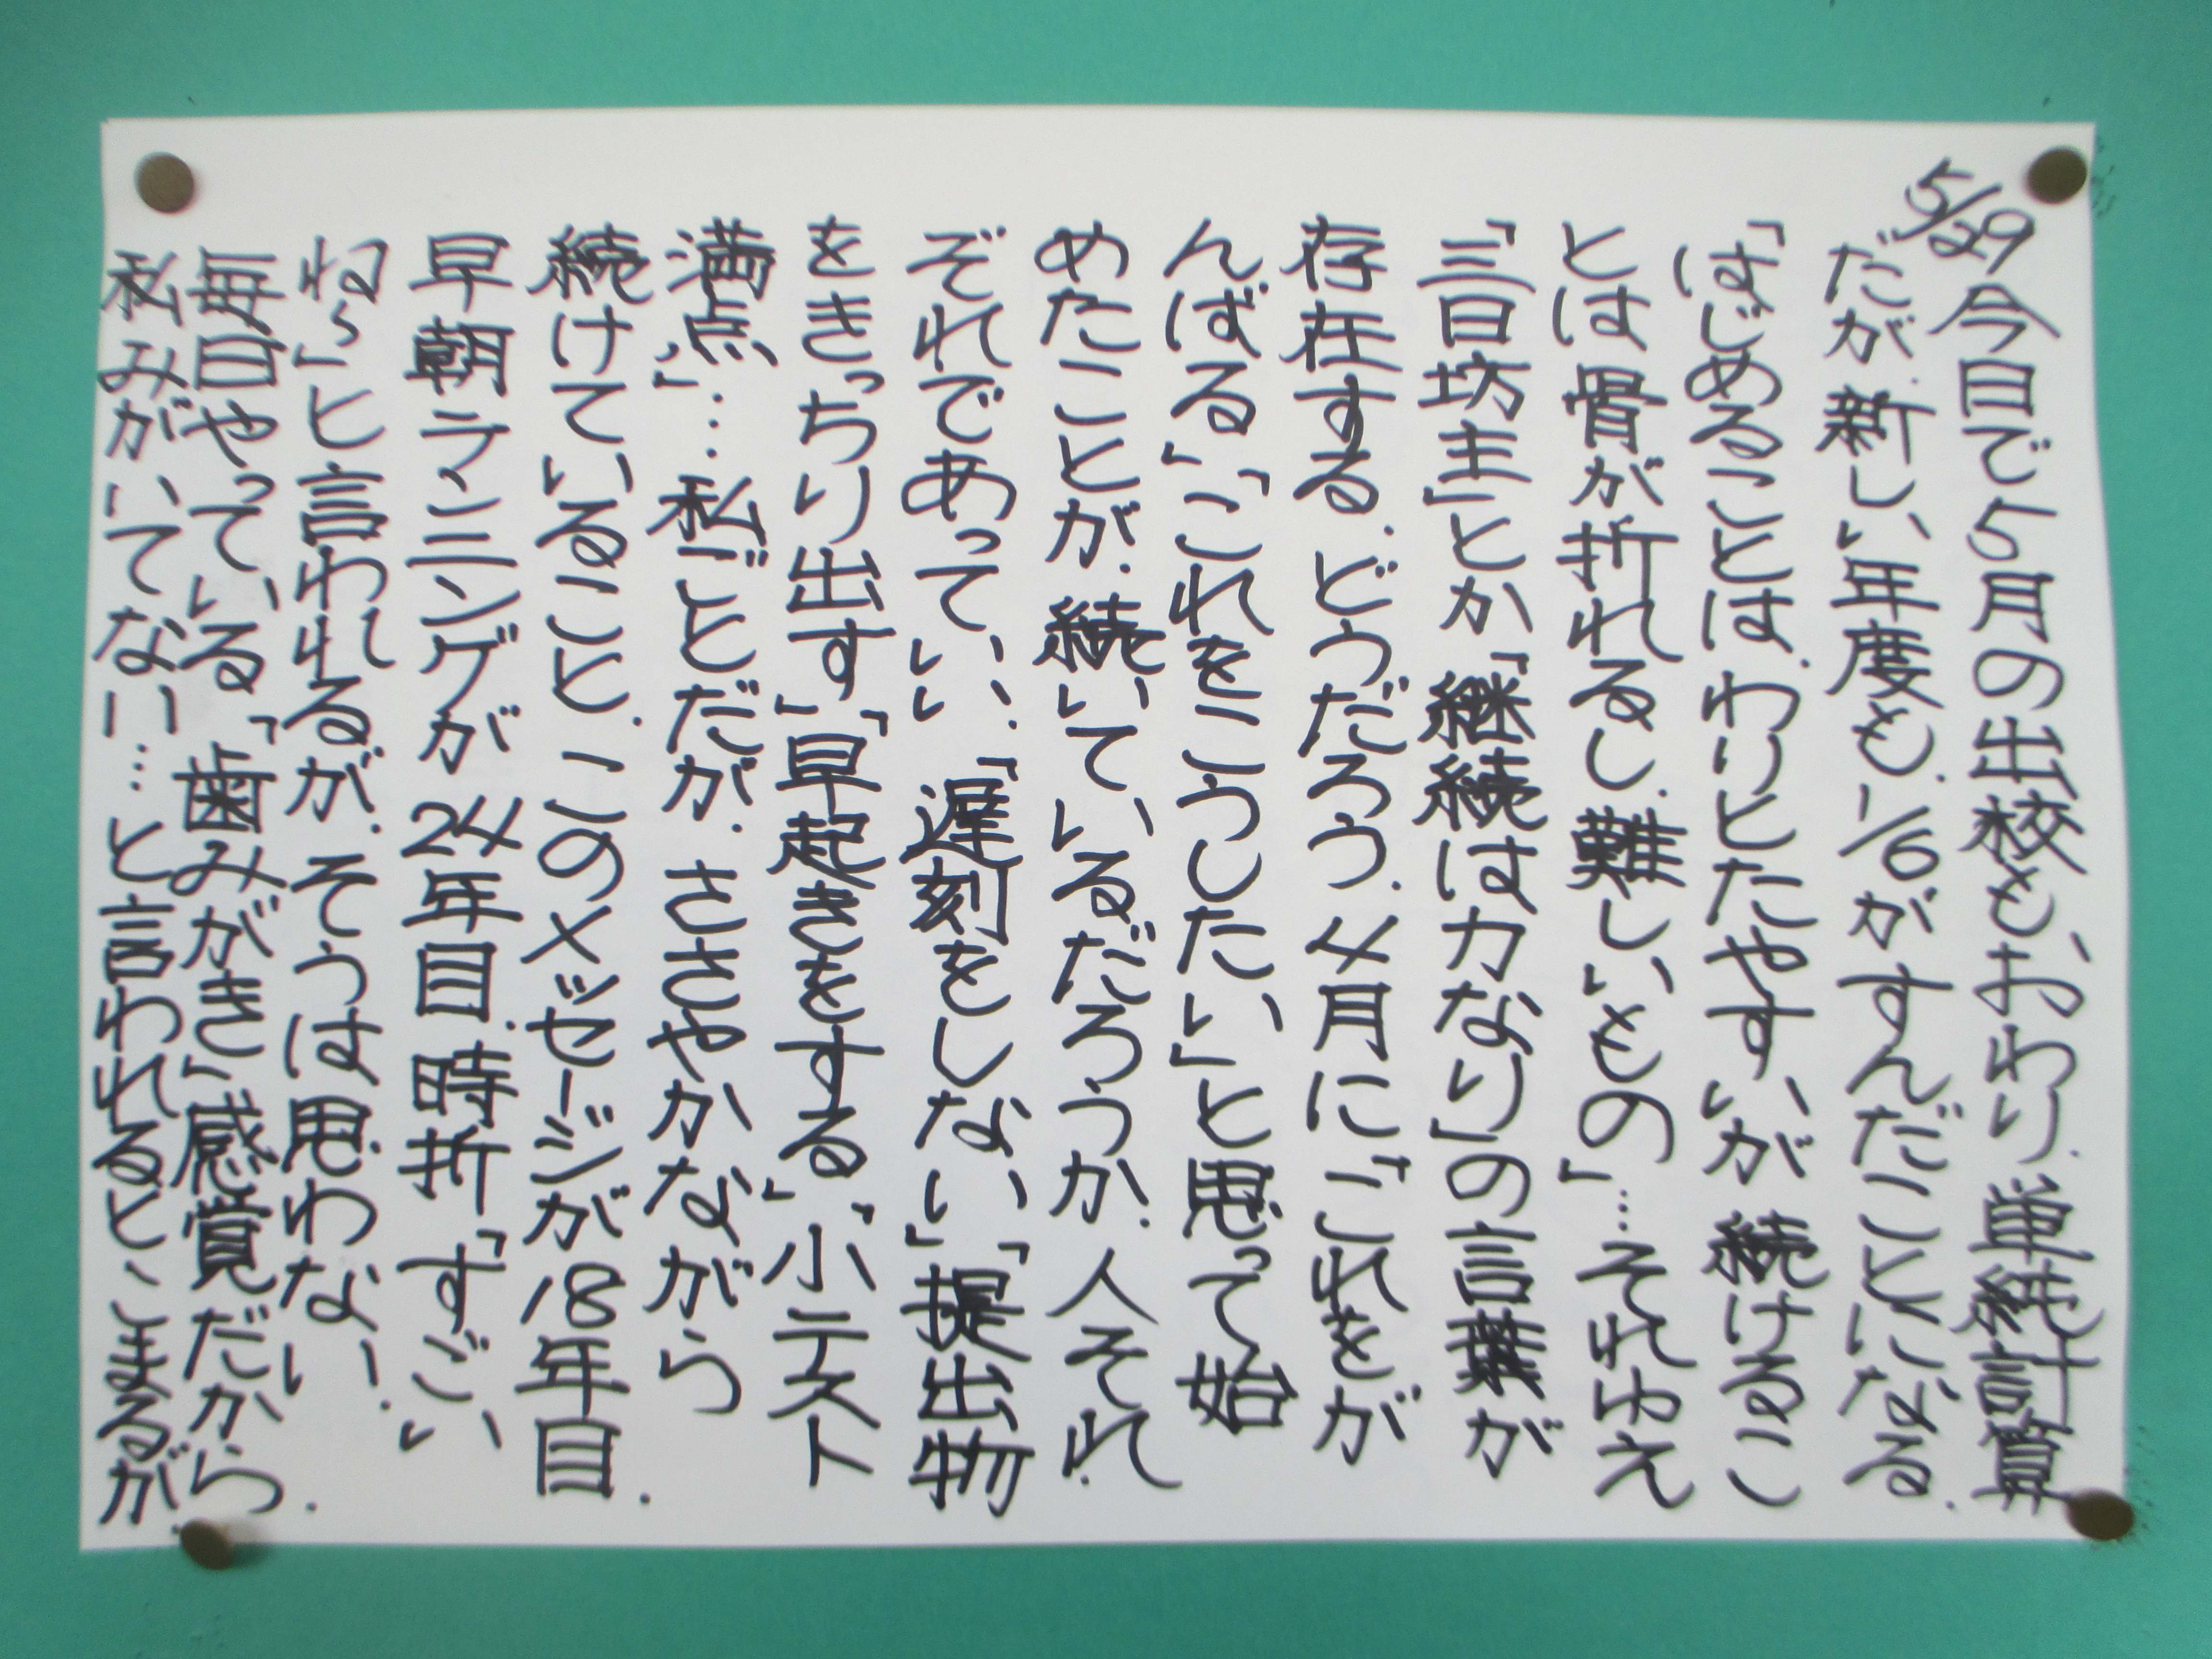 5/29 今日で5月の出校も、おわり、単純計算
だが、新しい年度も、1/6がすんだことになる。
「はじめることは、わりとたやすいが 続けるこ
とは骨が折れるし、難しいもの」…それゆえ
「三日坊主」とか「継続は力なり」の言葉が
存在する。どうだろう。4月に「これをが
んばる」「これをこうしたい」と思って始
めたことが、続いているだろうか。人それ
ぞれであっていい。「遅刻をしない」「提出物
をきっちり出す」「早起きをする」「小テスト
満点」…私ごとだが、ささやかながら
続けていること、このメッセージが18年目。
早朝ランニングが24年目、時折「すごい
ねぇ」と言われるが、そうは思わない。
毎日やっている「歯みがき」感覚だから。
私みがいてない…と言われると、こまるが。